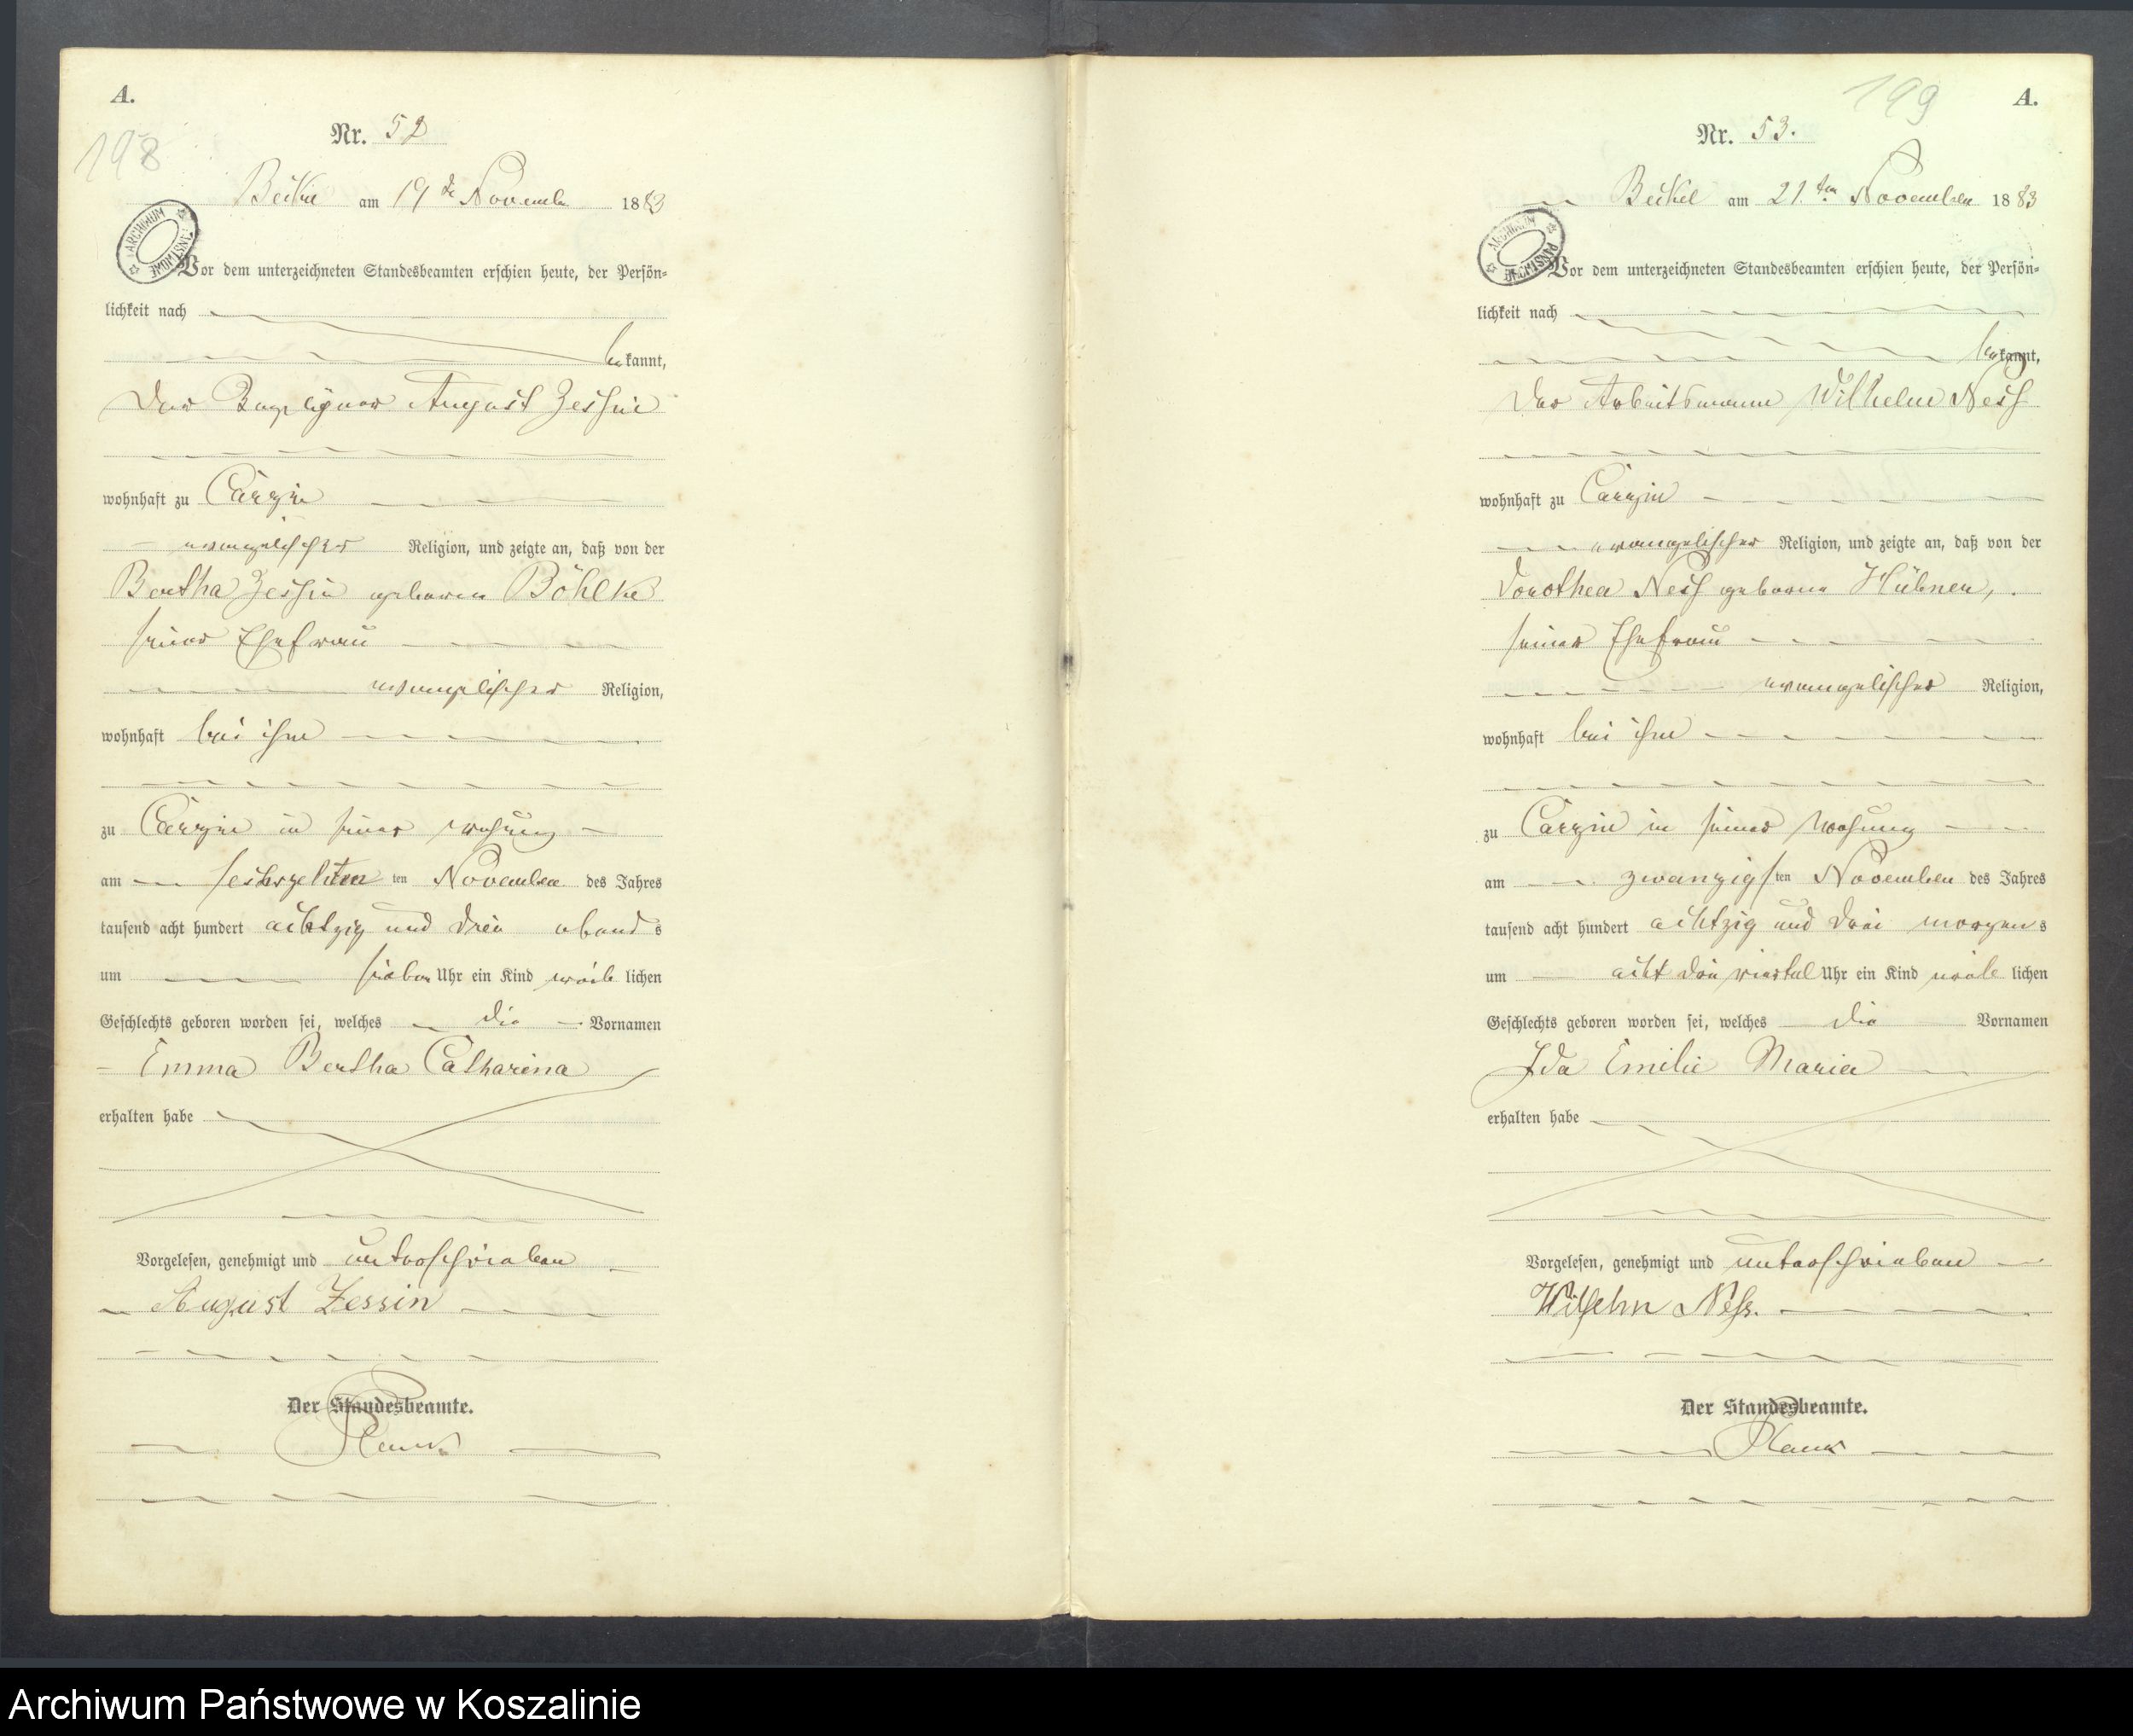 A.
198
Nr. 52
am 19 te November 1883
ARCHIWUM PAŃSTWOWE
Vor dem unterzeichneten Standesbeamten erschien heute, der Persön=
lichkeit nach
bekannt,
Der August Zessin
wohnhaft zu Carzin
evangelischer Religion, und zeigte an, daß von der
Bertha Zessin geborene Böhlke
seiner Ehefrau
evangelischer Religion,
wohnhaft bei ihm
zu Carzin in seiner Wohung
am sechszehnten ten November des Jahres
tausend acht hundert achtzig und drei abends
um sieben Uhr ein Kind weiblichen
Geschlechts geboren worden sei, welches die Vornamen
Emma Bertha Catharina
erhalten habe
Vorgelesen, genehmigt und unterschrieben
August Zessin
Der Standesbeamte.
199
A.
Nr. 53.
am 21. ten November 1883
ARCHIWUM PAŃSTWOWE
Vor dem unterzeichneten Standesbeamten erschien heute, der Persön=
lichkeit nach
bekannt,
Der Arbeitsmann Wilhelm Ness
wohnhaft zu Carzin
evangelischer Religion, und zeigte an, daß von der
Dorothea Ness geborne Hübner,
seiner Ehefrau
evangelischer Religion,
wohnhaft bei ihm
zu Carzin in seiner Wohung
am zwanzigsten November des Jahres
tausend acht hundert achtzig und drei morgens
um acht drei viertel Uhr ein Kind weiblichen
Geschlechts geboren worden sei, welches die Vornamen
Ida Emilie Maria
erhalten habe
Vorgelesen, genehmigt und unterschrieben
Wilhelm Neß.
Der Standesbeamte.
Archiwum Państwowe w Koszalinie